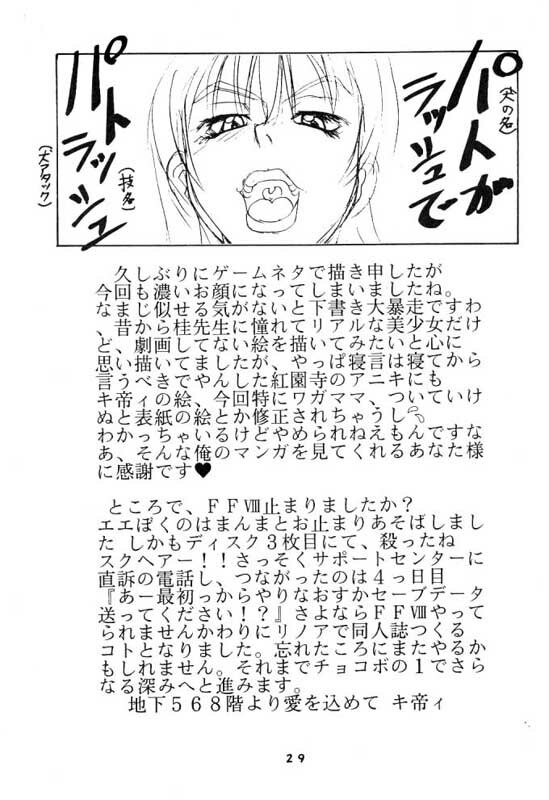 パトが
(犬の名)
ラッシュで
パトラッシュ
(技名)
(犬アタック)
久しぶりにゲームネタで描き申したが
今回も濃いお顔になってしまいましたね。
なまじ似せる気がないと下書き大暴走ですわ
、昔から桂先生に憧れてリアルな美少女だけ
ど、劇画してない絵を描いてみたいと心に
思い描いてましたが、やっぱ寝言は寝てから
言うべきでやんした紅園寺のアニキにも
キ帝ィの絵、今回特にワガママ、ついていけ
ぬと表紙の絵とか修正されちゃうし
わかっちゃいるけどやめられねえもんですな
あ、そんな俺のマンガを見てくれるあなた様
に感謝です♥
ところで、ＦＦⅧ止まりましたか？
エエぼくのはまんまとお止まりあそばしまし
た しかもディスク３枚目にて、殺ったね
スクヘアー！！さっそくサポートセンターに
直訴の電話し、つながったのは４っ日目
『あー最初っからやりなおすかセーブデータ
送ってください！？』さよならＦＦⅧやって
られませんかわりにリノアで同人誌つくる
コトとなりました。忘れたころにまたやるか
もしれません。それまでチョコボの１でさら
なる深みへと進みます。
地下５６８階より愛を込めて キ帝ィ
29